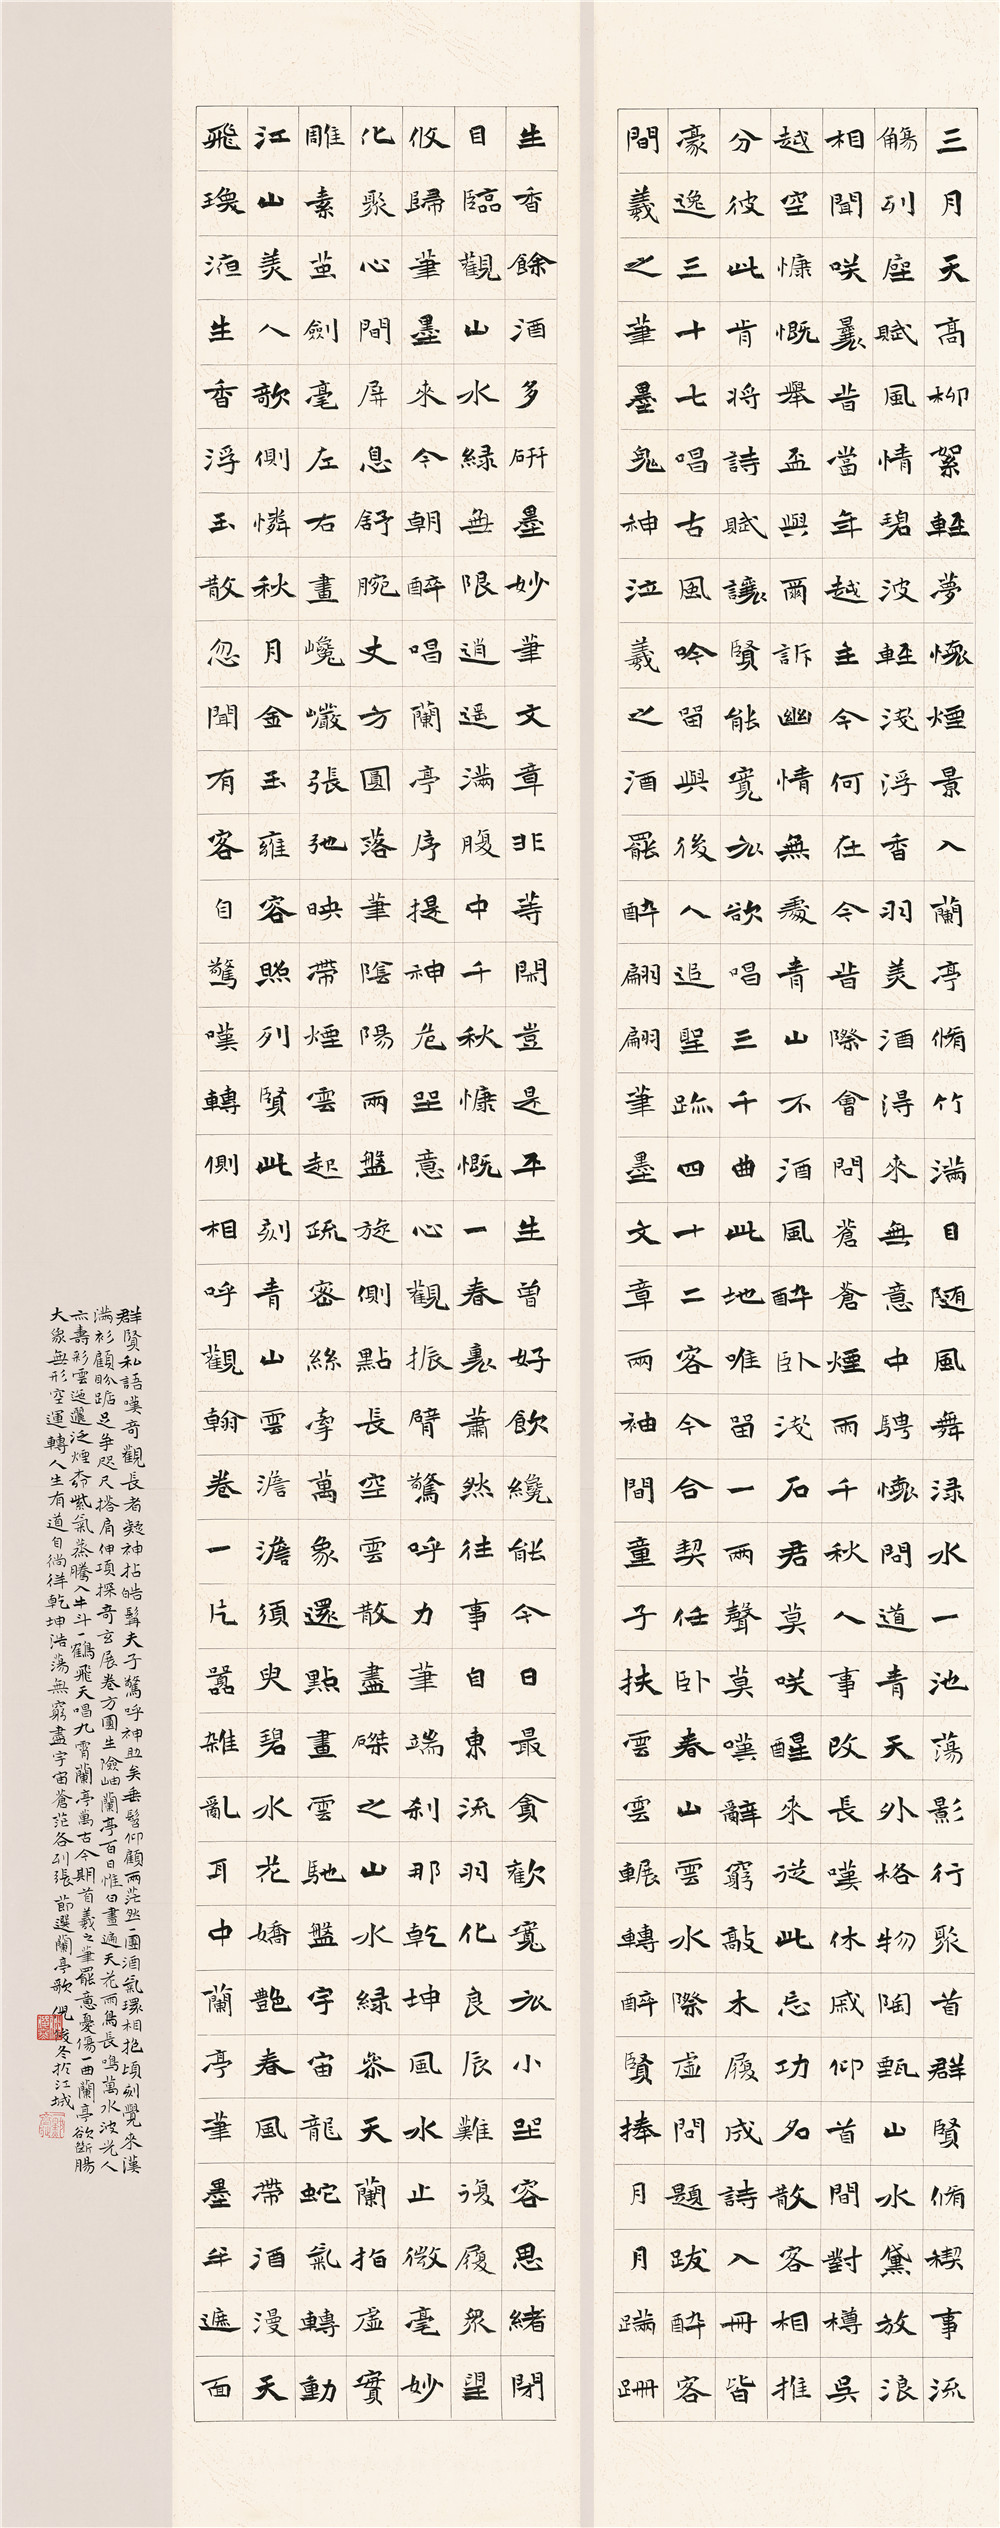 三月天高柳絮輕夢懷煙景入蘭亭脩竹滿目随風舞渌水一池蕩影行聚首群賢脩禊事流
觴列座賦風情碧波輕淺浮香羽美酒得來無意中騁懷問道青天外格物陶甄山水黛放浪
相聞咲曩昔當年越主今何在今昔際會問蒼蒼煙雨千秋人事改長嘆休戚仰首間對樽吳
越空慷慨舉盃與爾訴幽情無處青山不酒風醉卧淺石君莫咲醒來從此忘功名散客相推
分彼此肯将詩賦讓賢能寬衣欲唱三千曲此地唯留一兩聲莫嘆辭窮敲木屐成詩入冊皆
豪逸三十七唱古風吟留與後人追聖跡四十二客今合契任卧春山雲水際虛問題跋醉客
間羲之筆墨鬼神泣羲之酒罷醉翩翩筆墨文章兩袖間童子扶雲雲輾轉醉賢捧月月蹣跚
生香餘酒多研墨妙筆文章非等閑豈是平生曾好飲纔能今日最貪歡寬衣小坐容思緒閉
目臨觀山水緑無限逍遥滿腹中千秋慷慨一春裏蕭然往事自東流羽化良辰難復履衆望
攸歸筆墨來今朝醉唱蘭亭序提神危坐意心觀振臂驚呼力筆端刹那乾坤風水止微毫妙
化聚心間屏息舒腕丈方圓落筆陰陽兩盤旋側點長空雲散盡磔之山水緑参天蘭指虛實
雕素茧劍毫左右畫巉巖張弛映帶煙雲起疏密絲牽萬象還點畫雲馳盤宇宙龍蛇氣轉動
江山美人歌側憐秋月金玉雍容照列賢此刻青山雲澹澹須臾碧水花嬌艷春風帶酒漫天
飛瓊液生香浮玉散忽聞有客自驚嘆轉側相呼觀翰卷一片囂雜亂耳中蘭亭筆墨半遮面
群賢私語嘆奇觀長者凝神拈皓髯夫子驚呼神助矣垂髫仰顧兩茫然一團酒氣環相抱頃刻覺來漢
滿衫顧盼踮足争咫尺搭肩伸項探奇玄展卷方圓生險岫蘭亭百日惟白晝遍天花雨鳥長鳴萬水波光人
亦壽彩雲迤邐泛煙霧紫氣蒸騰入牛斗一鶴飛天唱九霄蘭亭萬古今期首羲之筆罷意憂傷一曲蘭亭欲斷腸
大象無形空運轉人生有道自徜徉乾坤浩蕩無窮盡宇宙蒼茫各列張 節選蘭亭歌 冬於江城